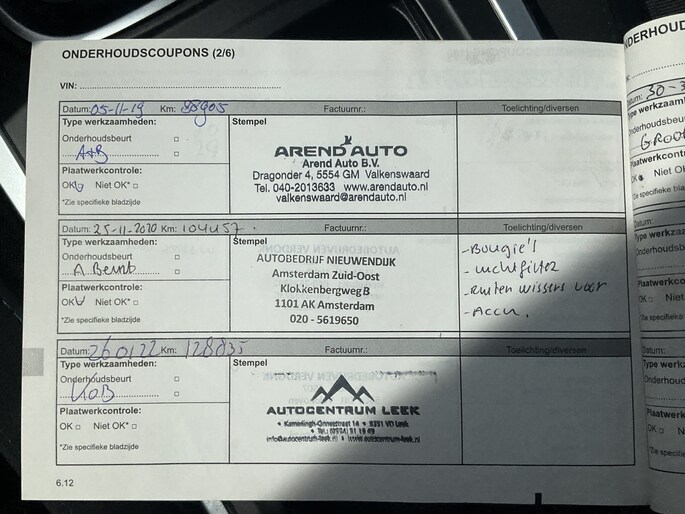 ONDERHOUDSCOUPONS (2/6)
VIN:
Datum: 05-11-19 Km: 88905 Factuurnr.: Toelichting/diversen
Type werkzaamheden:
Onderhoudsbeurt
A+B
Plaatwerkcontrole:
OK Niet OK*
*Zie specifieke bladzijde
Stempel
AREND AUTO
Arend Auto B.V.
Dragonder 4, 5554 GM Valkenswaard
Tel. 040-2013633 www.arendauto.nl
valkenswaard@arendauto.nl
Datum: 25-11-2020 Km: 104457 Factuurnr.: Toelichting/diversen
Type werkzaamheden:
Onderhoudsbeurt
A Beurt
Plaatwerkcontrole:
OK Niet OK*
*Zie specifieke bladzijde
Stempel
AUTOBEDRIJF NIEUWENDIJK
Amsterdam Zuid-Oost
Klokkenbergweg B
1101 AK Amsterdam
020 - 5619650
- Bougie's
- luchtfilter
- Ruiten wissers voor
- Accu.
Datum: 260122 Km: 128835 Factuurnr.: Toelichting/diversen
Type werkzaamheden:
Onderhoudsbeurt
Plaatwerkcontrole:
OK Niet OK*
*Zie specifieke bladzijde
Stempel
AUTOCENTRUM LEEK
Kamerlingh-Onnestraat 14 • 9351 VD Leek
6.12
NDERHOUDSC
Datum: 30-3
Type werkzaam
Onderhoudsbeurt
GROO
Plaatwerkcontro
OK Niet OK
*Zie specifieke bla
Datum:
Type werkzaar
Onderhoudsbeu
Plaatwerkcontr
OK Niet O
*Zie specifieke b
Datum:
Type werkzaa
Onderhoudsbe
Plaatwerkcon
OK Niet
*Zie specifieke